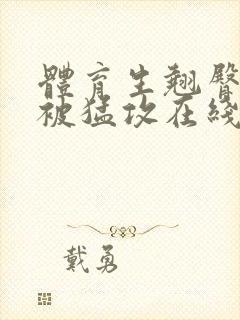 體育生翹臀
被猛攻在綫
戴勇